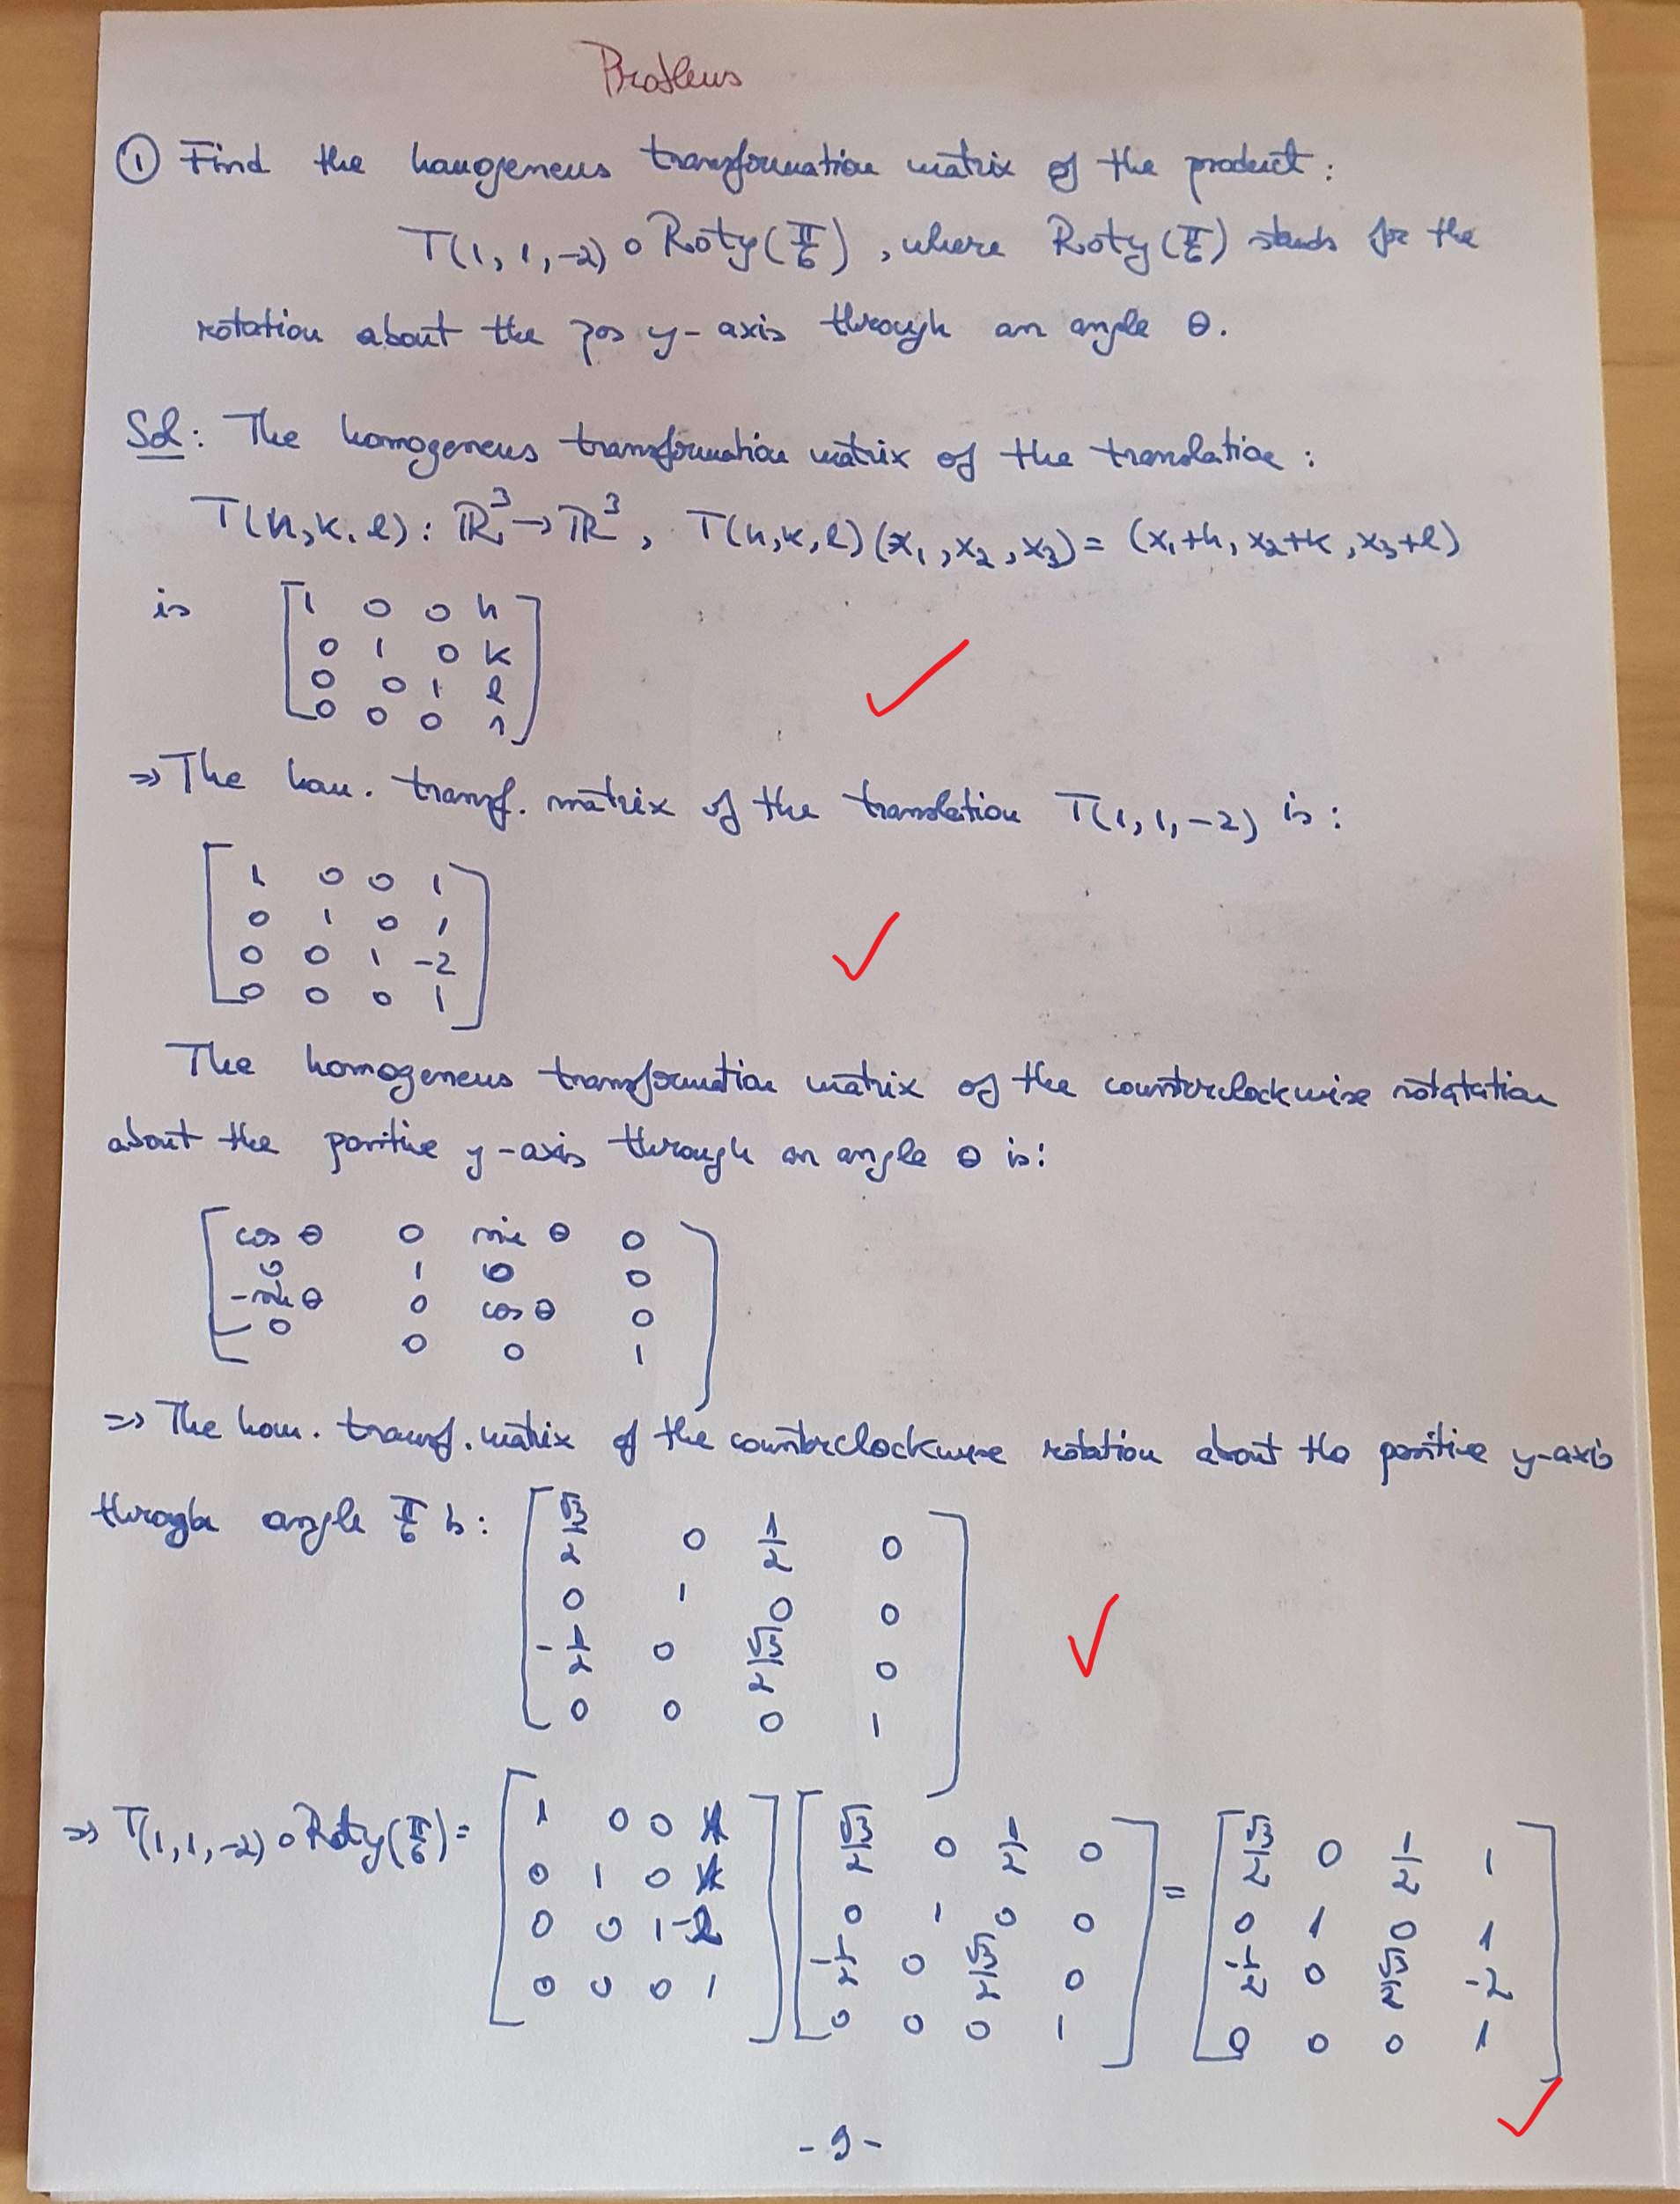 Problems
① Find the homogeneus transformation matrix of the product:
T(1, 1, -2) ∘ Roty(π/6), where Roty(π/6) stands for the
rotation about the pos y-axis through an angle θ.
Sol: The homogeneus transformation matrix of the translation:
T(h, k, l): ℝ³ → ℝ³, T(h, k, l)(x₁, x₂, x₃) = (x₁+h, x₂+k, x₃+l)
is
1 0 0 h
0 1 0 k
0 0 1 l
0 0 0 1
⇒ The hom. transf. matrix of the translation T(1, 1, -2) is:
1 0 0 1
0 1 0 1
0 0 1 -2
0 0 0 1
The homogeneus transformation matrix of the counterclockwise rotatation
about the positive y-axis through an angle θ is:
cos θ 0 sin θ 0
0 1 0 0
-sin θ 0 cos θ 0
0 0 0 1
⇒ The hom. transf. matrix of the counterclockwise rotation about the positive y-axis
through angle π/6 is:
√3/2 0 1/2 0
0 1 0 0
-1/2 0 √3/2 0
0 0 0 1
⇒ T(1, 1, -2) ∘ Roty(π/6) =
1 0 0 1
0 1 0 1
0 0 1 -2
0 0 0 1
√3/2 0 1/2 0
0 1 0 0
-1/2 0 √3/2 0
0 0 0 1
=
√3/2 0 1/2 1
0 1 0 1
-1/2 0 √3/2 -2
0 0 0 1
- 9 -